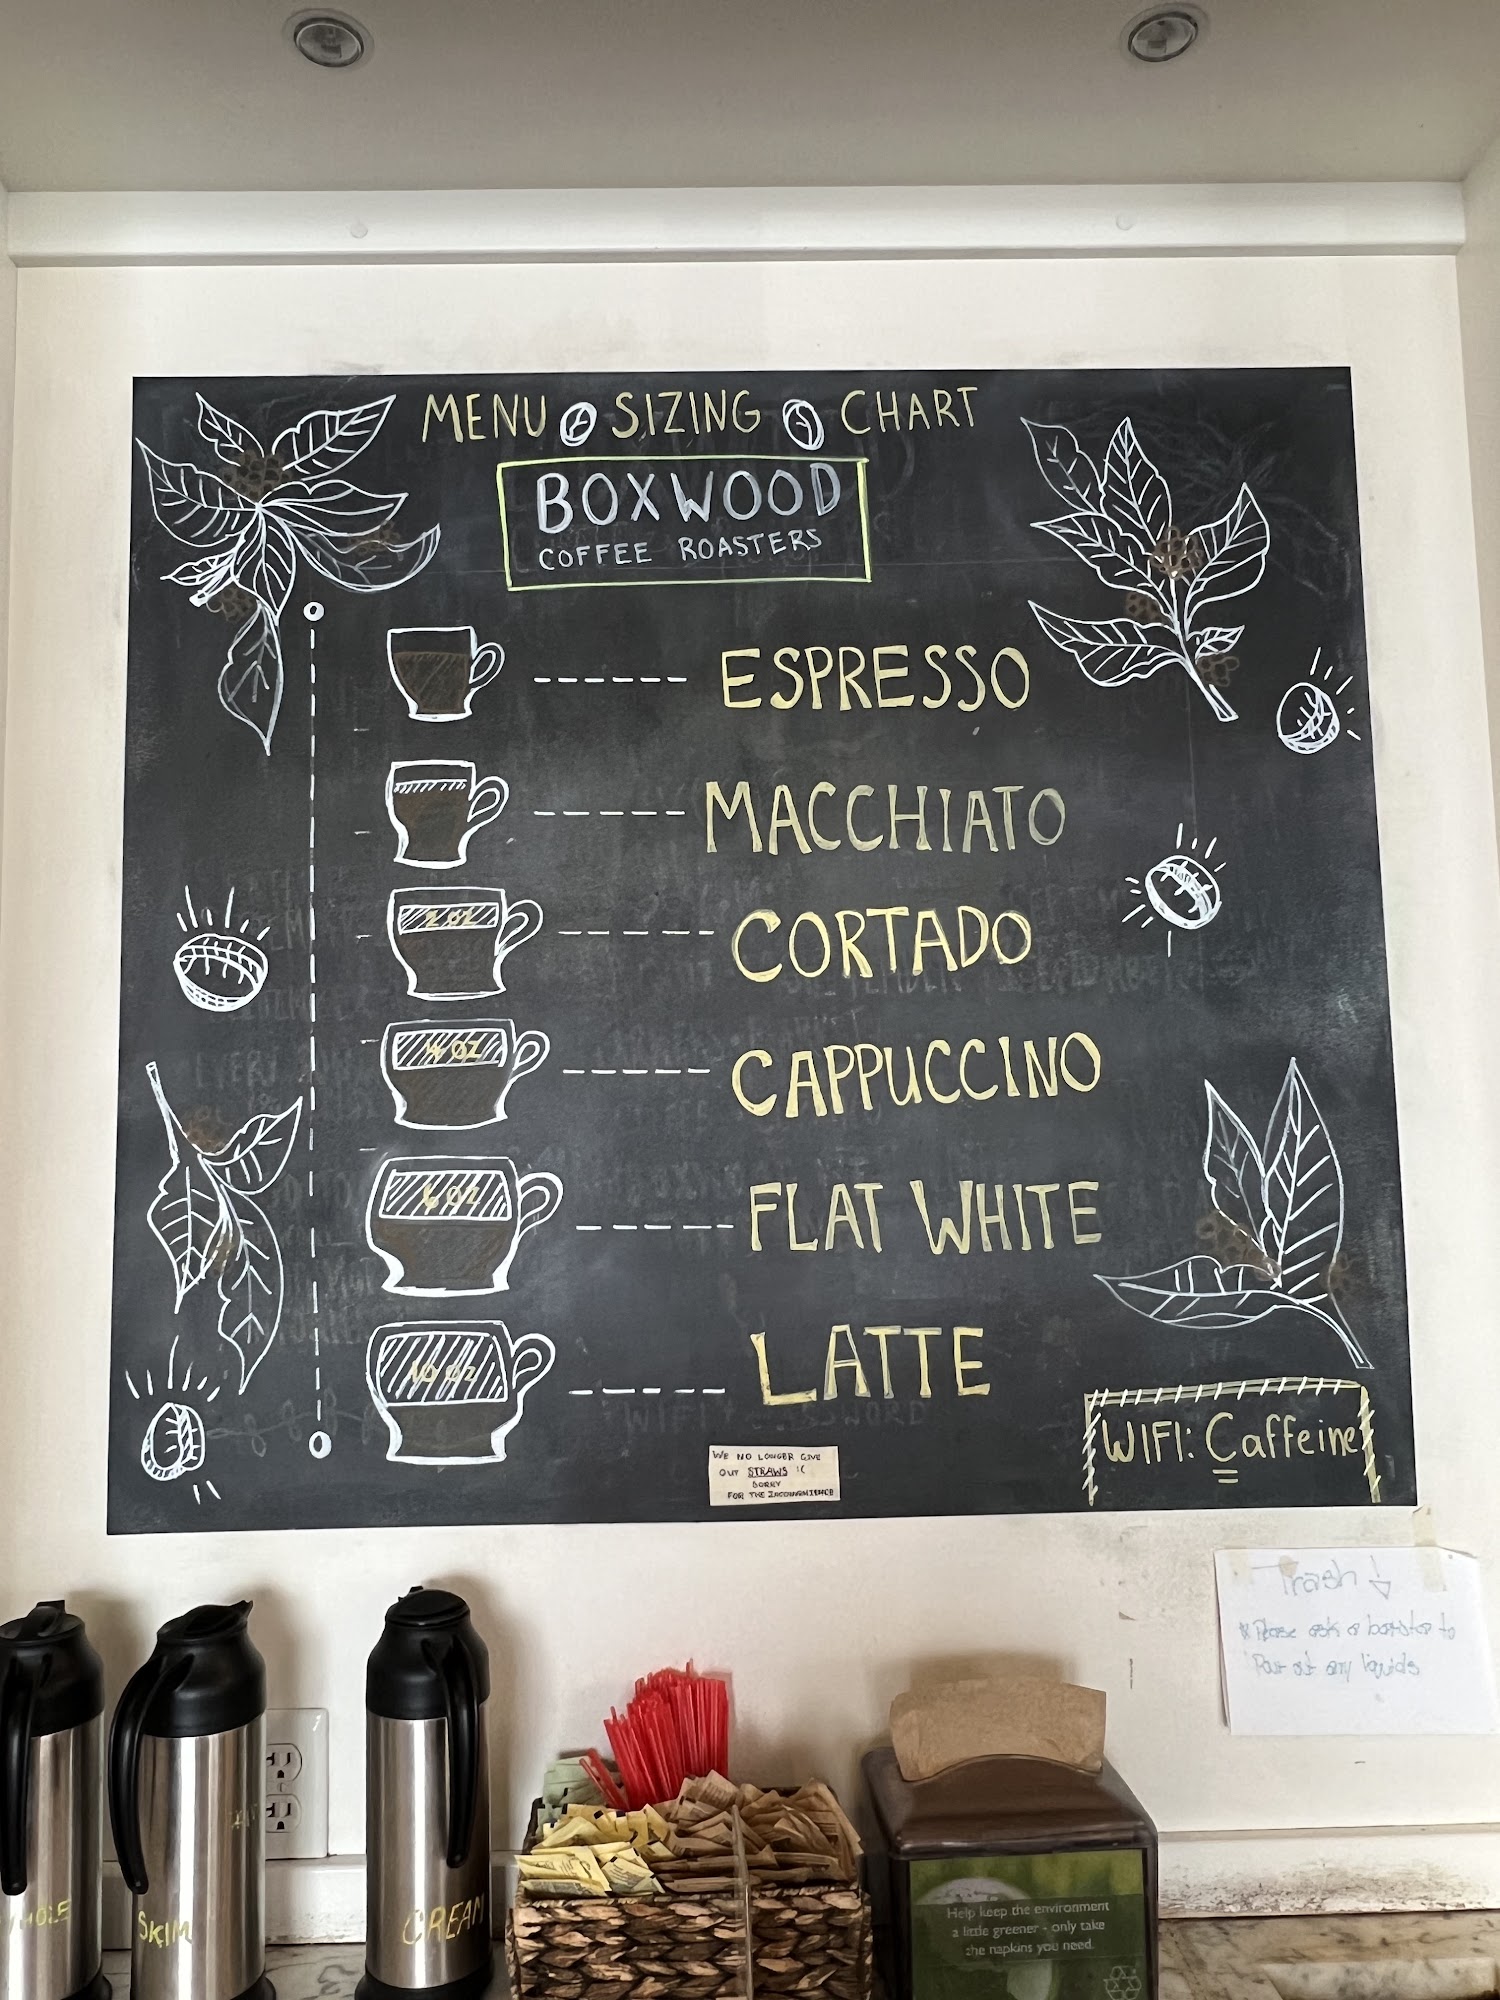 MENU SIZING CHART
BOXWOOD
COFFEE ROASTERS
ESPRESSO
MACCHIATO
2 OZ
CORTADO
4 OZ
CAPPUCCINO
6 OZ
FLAT WHITE
10 OZ
LATTE
WE NO LONGER GIVE
OUT STRAWS :(
SORRY
FOR THE INCONVENIENCE
WIFI: Caffeine
Trash ↓
* Please ask a barista to
Pour out any liquids
WHOLE
SKIM
CREAM
Help keep the environment
a little greener - only take
the napkins you need.